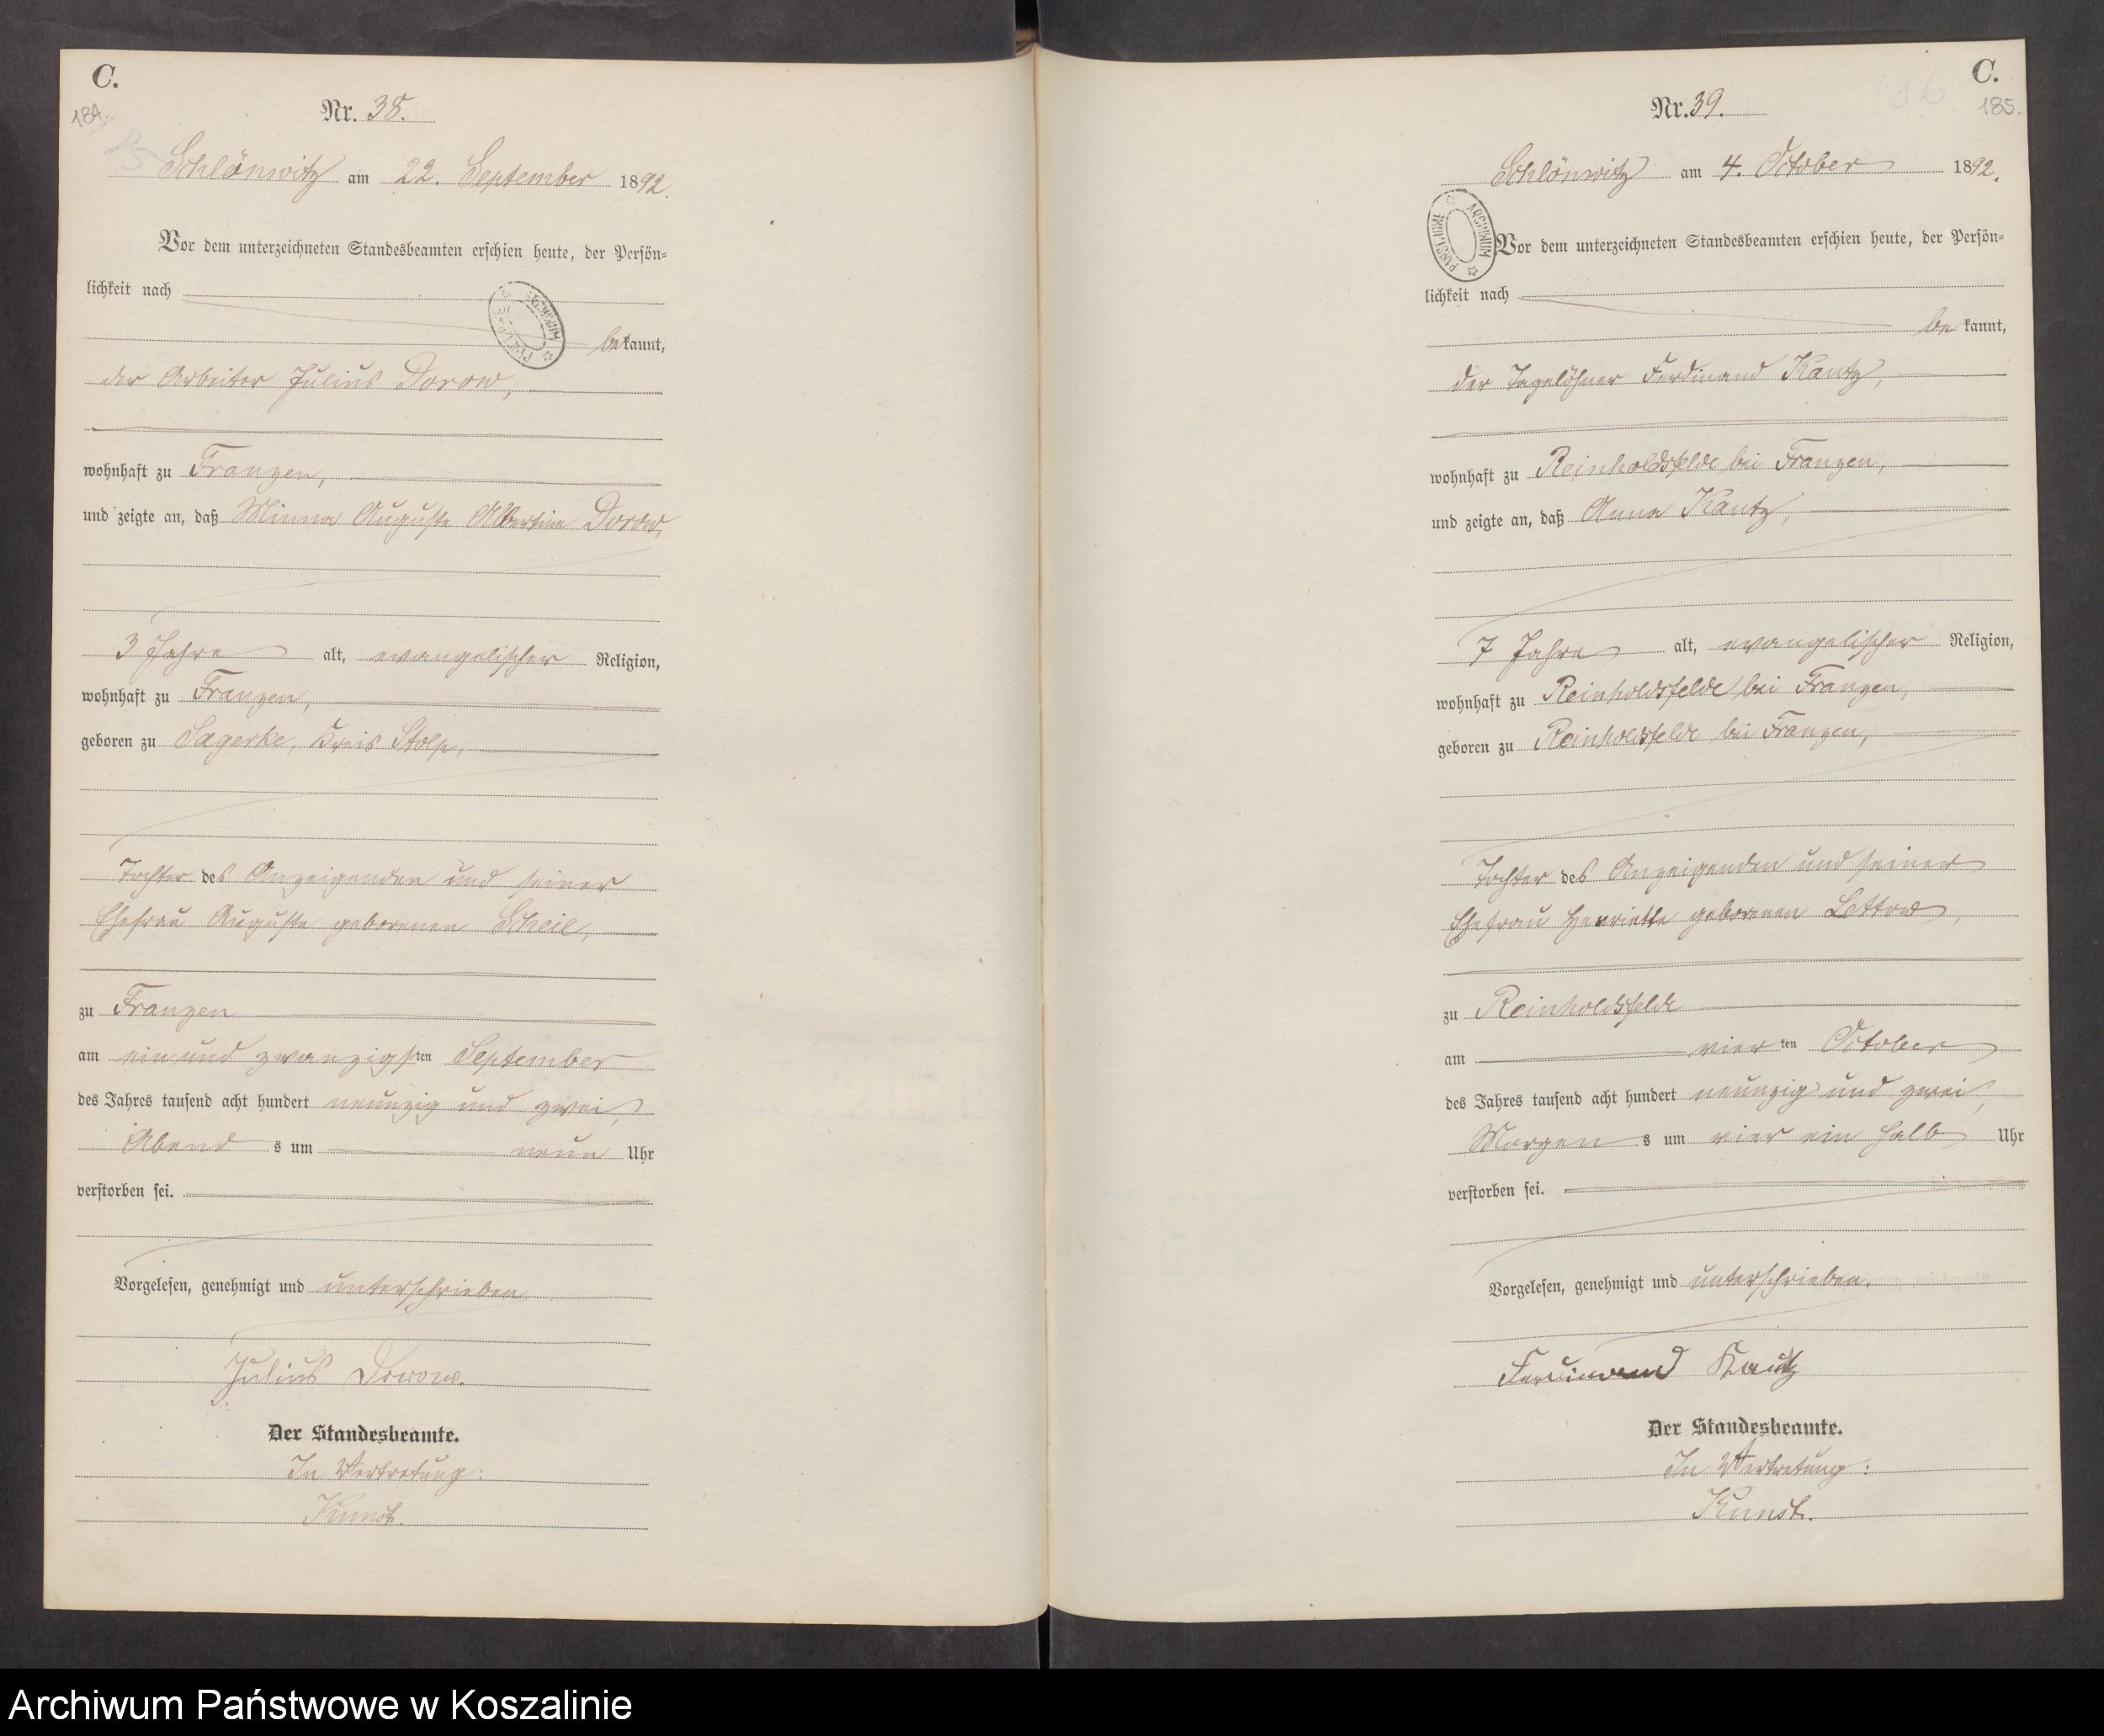 C.
184.
Nr. 38.
Schlönwitz am 22. September 1892.
Vor dem unterzeichneten Standesbeamten erschien heute, der Persön-
lichkeit nach
bekannt,
der Arbeiter Julius Dorow,
wohnhaft zu Franzen,
und zeigte an, daß Minna Auguste Albertine Dorow,
3 Jahre alt, evangelischer Religion,
wohnhaft zu Franzen,
geboren zu Sagerke, Kreis Stolp,
Tochter des Anzeigenden und seiner
Ehefrau Auguste geborenen Scheil,
zu Franzen
am ein und zwanzigsten September
des Jahres tausend acht hundert neunzig und zwei,
Abends um neun Uhr
verstorben sei.
Vorgelesen, genehmigt und unterschrieben
Julius Dorow.
Der Standesbeamte.
In Vertretung:
Kunst.
C.
185.
Nr. 39.
Schlönwitz am 4. October 1892.
ARCHIWUM PAŃSTWOWE
Vor dem unterzeichneten Standesbeamten erschien heute, der Persön-
lichkeit nach
bekannt,
der Tagelöhner Ferdinand Kautz,
wohnhaft zu Reinholdsfelde bei Franzen,
und zeigte an, daß Anna Kautz,
7 Jahre alt, evangelischer Religion,
wohnhaft zu Reinholdsfelde bei Franzen,
geboren zu Reinholdsfelde bei Franzen,
Tochter des Anzeigenden und seiner
Ehefrau Henriette geborenen Lettow,
zu Reinholdsfelde
am vierten October
des Jahres tausend acht hundert neunzig und zwei,
Morgens um vier ein halb Uhr
verstorben sei.
Vorgelesen, genehmigt und unterschrieben.
Ferdinand Kautz
Der Standesbeamte.
In Vertretung:
Kunst.
Archiwum Państwowe w Koszalinie